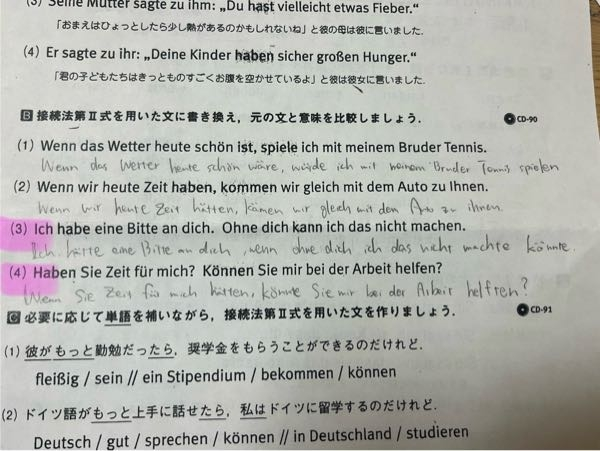 (3) Seine Mutter sagte zu ihm: „Du hast vielleicht etwas Fieber.“
「おまえはひょっとしたら少し熱があるのかもしれないね」と彼の母は彼に言いました.
(4) Er sagte zu ihr: „Deine Kinder haben sicher großen Hunger.“
「君の子どもたちはきっとものすごくお腹を空かせているよ」と彼は彼女に言いました.
B 接続法第Ⅱ式を用いた文に書き換え，元の文と意味を比較しましょう． CD-90
(1) Wenn das Wetter heute schön ist, spiele ich mit meinem Bruder Tennis.
Wenn das Wetter heute schön wäre, würde ich mit meinem Bruder Tennis spielen
(2) Wenn wir heute Zeit haben, kommen wir gleich mit dem Auto zu Ihnen.
Wenn wir heute Zeit hätten, kämen wir gleich mit dem Auto zu ihnen.
(3) Ich habe eine Bitte an dich. Ohne dich kann ich das nicht machen.
Ich hätte eine Bitte an dich, wenn ohne dich ich das nicht machte könnte.
(4) Haben Sie Zeit für mich? Können Sie mir bei der Arbeit helfen?
Wenn Sie Zeit für mich hätten, könnte Sie mir bei der Arbeit helfren?
C 必要に応じて単語を補いながら，接続法第Ⅱ式を用いた文を作りましょう． CD-91
(1) 彼がもっと勤勉だったら，奨学金をもらうことができるのだけれど．
fleißig / sein // ein Stipendium / bekommen / können
(2) ドイツ語がもっと上手に話せたら，私はドイツに留学するのだけれど．
Deutsch / gut / sprechen / können // in Deutschland / studieren